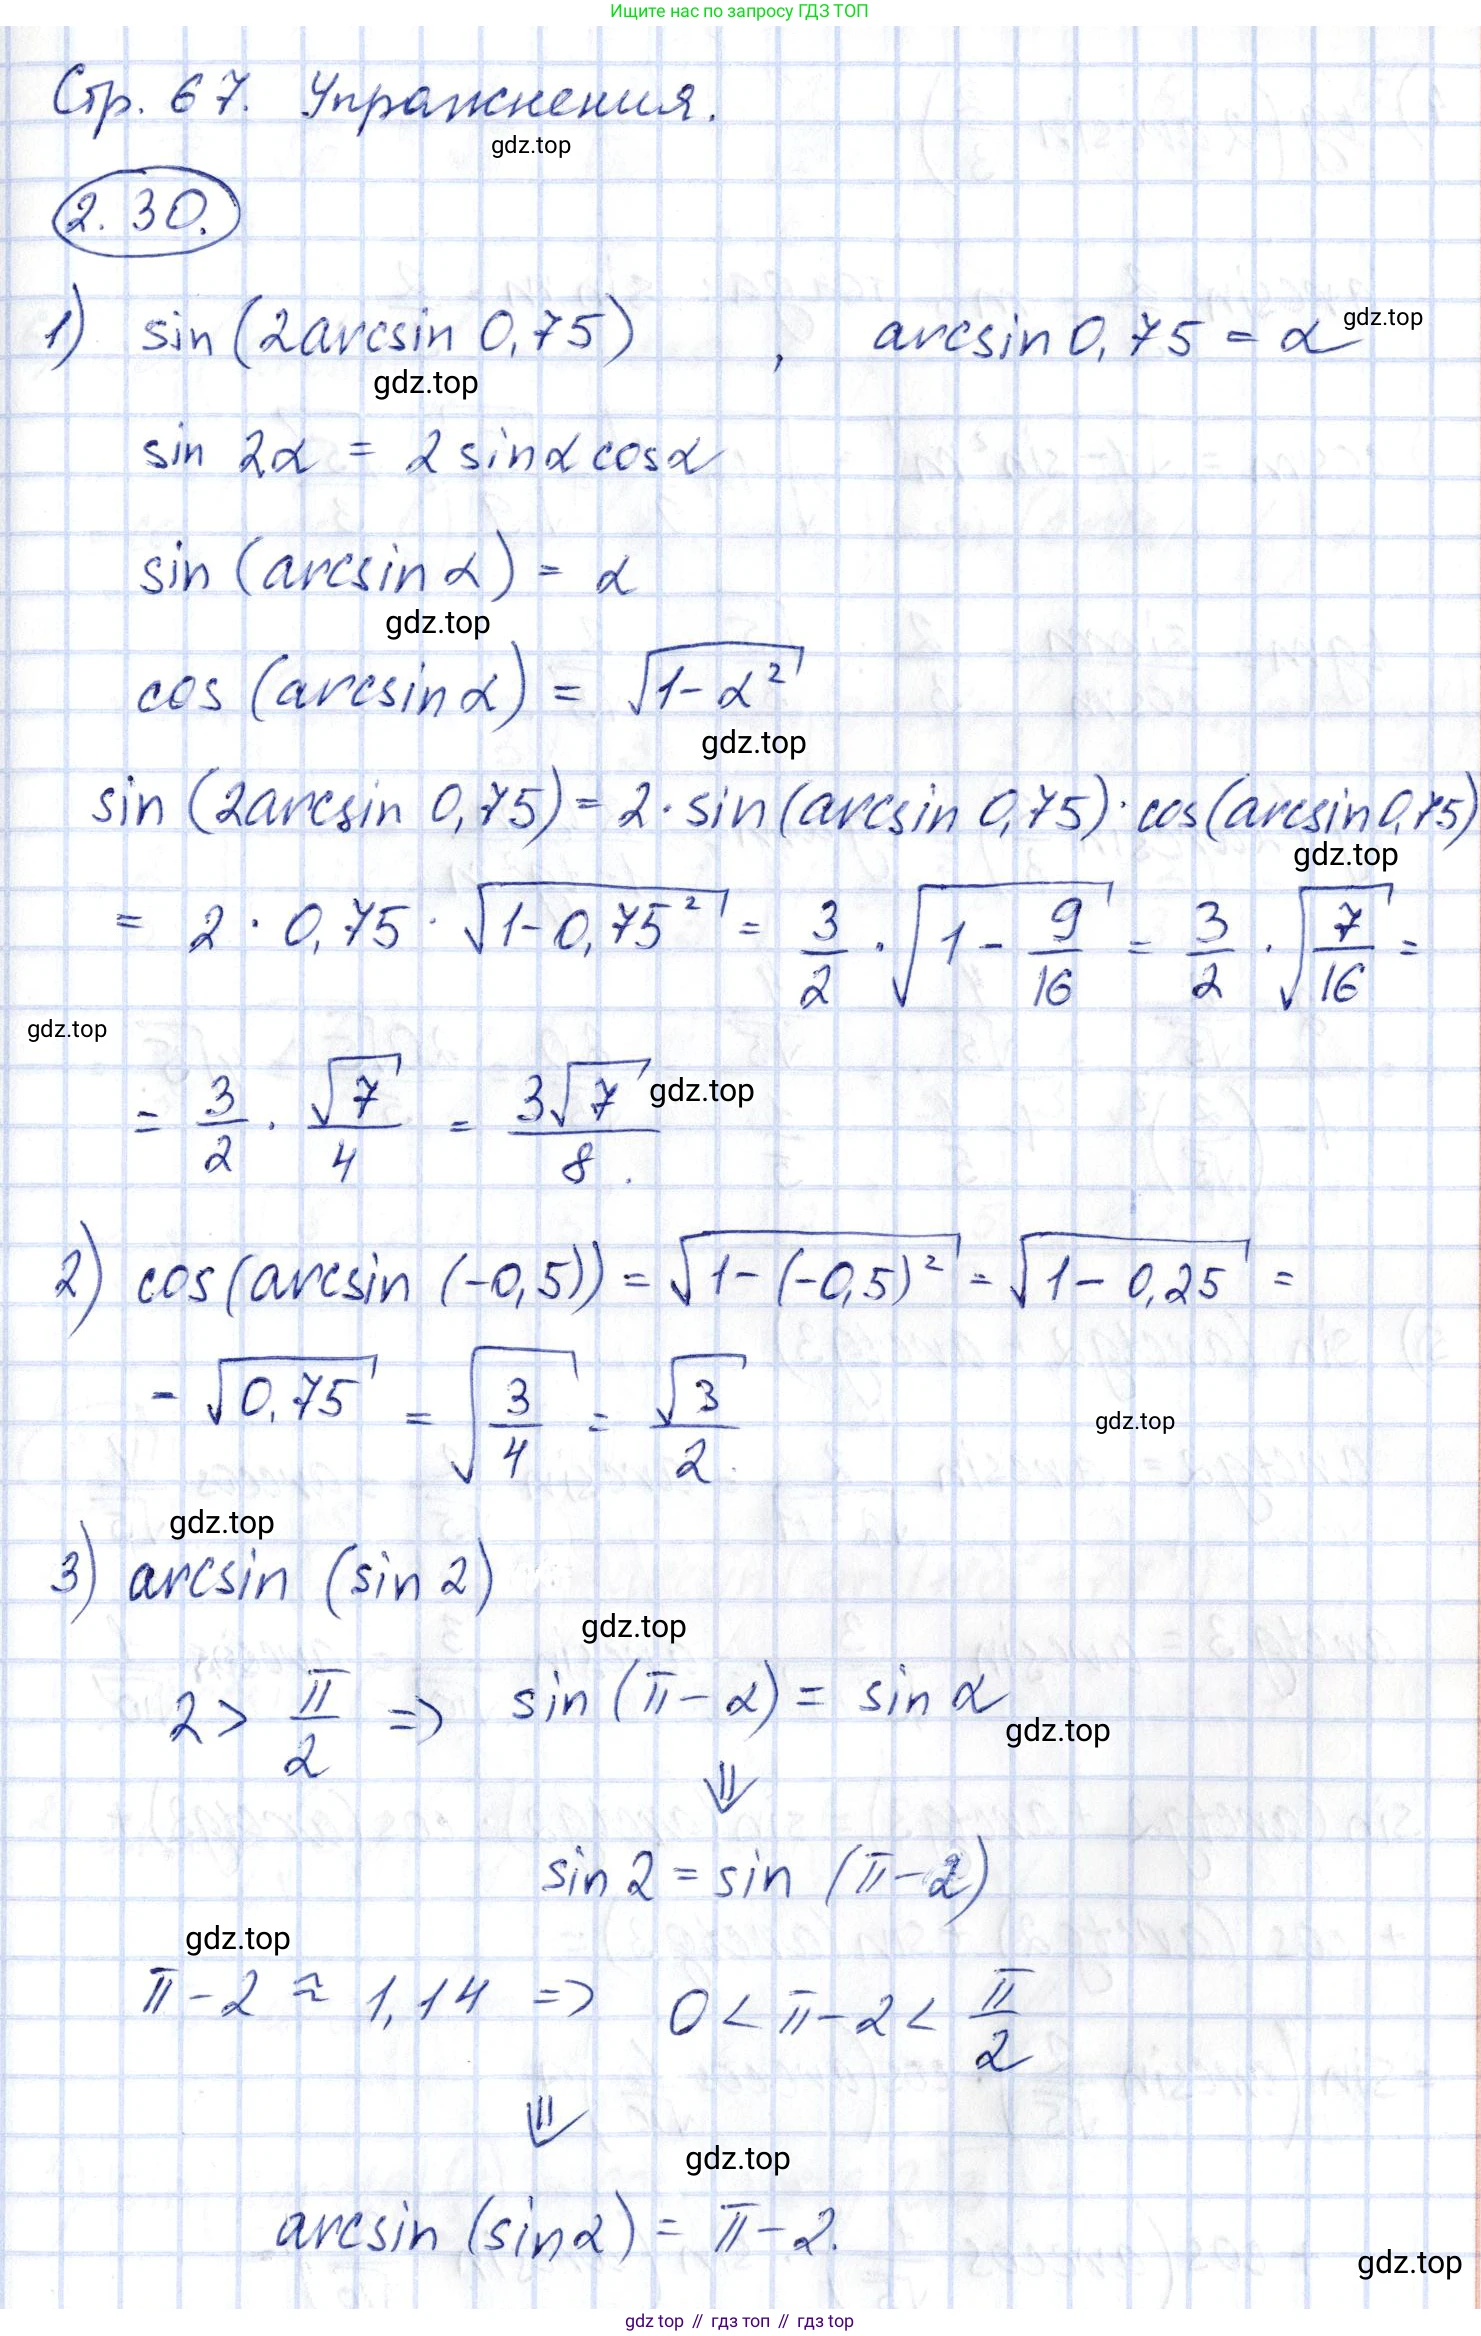 Ищите нас по запросу ГДЗ ТОП
Стр. 67. Упражнения.
gdz.top
2.30.
1) sin(2arcsin 0,75), arcsin 0,75 = α
gdz.top
gdz.top
sin 2α = 2 sinα cosα
sin (arcsin α) = α
gdz.top
cos (arcsin α) = √(1-α²)
gdz.top
sin (2arcsin 0,75) = 2 · sin (arcsin 0,75) · cos(arcsin 0,75)
gdz.top
= 2 · 0,75 · √(1-0,75²) = 3/2 · √(1 - 9/16) = 3/2 · √(7/16) =
gdz.top
= 3/2 · √7/4 = 3√7/8.
gdz.top
2) cos(arcsin (-0,5)) = √(1-(-0,5)²) = √(1-0,25) =
- √0,75 = √(3/4) = √3/2.
gdz.top
gdz.top
3) arcsin (sin 2)
gdz.top
2 > π/2 => sin (π-α) = sin α
gdz.top
⇓
sin 2 = sin (π-2)
gdz.top
π-2 ≈ 1,14 => 0 < π-2 < π/2
⇓
gdz.top
arcsin (sin 2) = π-2.
gdz.top
gdz.top // гдз топ // гдз top